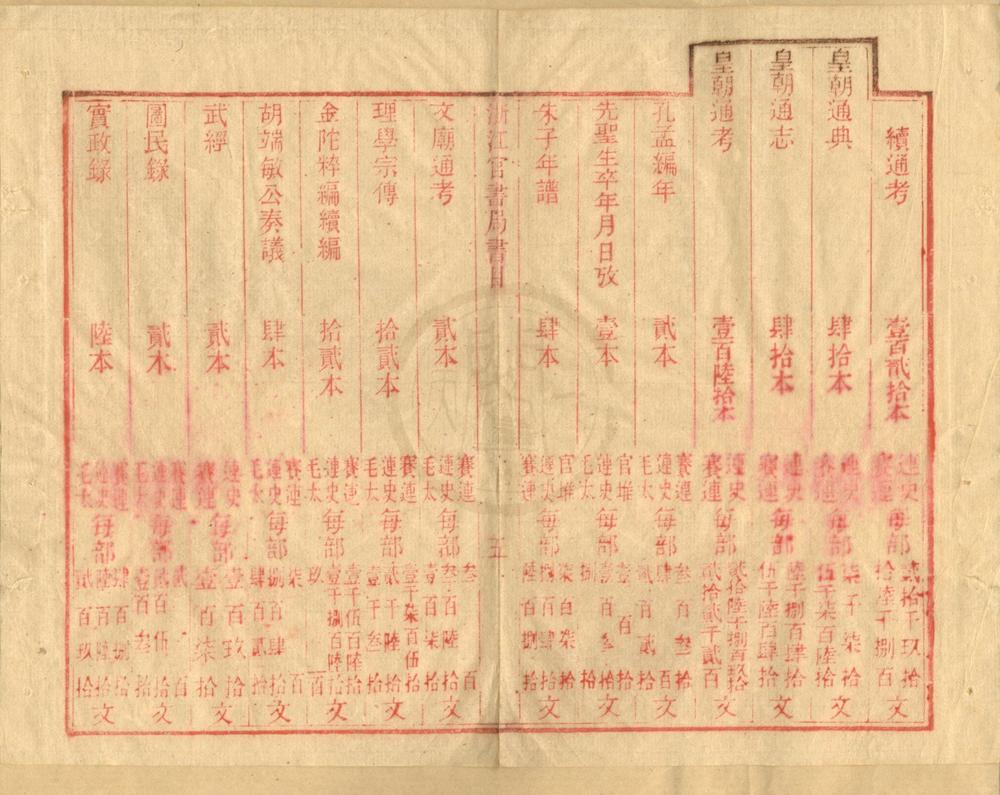 續通考 壹百貳拾本 連史 賽連 每部 貳拾千玖拾 拾陸千捌百 文
皇朝通典 肆拾本 連史 賽連 每部 柒千柒拾 伍千柒百陸拾 文
皇朝通志 肆拾本 連史 賽連 每部 陸千捌百肆拾 伍千陸百肆拾 文
皇朝通考 壹百陸拾本 連史 賽連 每部 貳拾陸千捌百玖拾 貳拾貳千貳百 文
孔孟編年 貳本 賽連 連史 毛太 每部 文
先聖生卒年月日攷 壹本 連史 官堆 毛太 每部 文
朱子年譜 肆本 官堆 連史 賽連 每部 柒百柒拾 捌百肆拾 陸百捌拾 文
浙江官書局書目 五
文廟通考 貳本 賽連 連史 毛太 每部 叁百 叁百陸拾 壹百柒拾 文
理學宗傳 拾貳本 賽連 連史 毛太 每部 壹千柒百伍拾 貳千陸拾 壹千叁拾 文
金陀粹編續編 拾貳本 賽連 連史 毛太 每部 壹千伍百陸拾 壹千捌百陸拾 玖百 文
胡端敏公奏議 肆本 賽連 連史 毛太 每部 柒百 捌百肆拾 肆百貳拾 文
武經 貳本 連史 賽連 每部 壹百玖拾 壹百柒拾 文
圖民錄 貳本 賽連 連史 毛太 每部 貳百 貳百伍拾 壹百叁拾 文
實政錄 陸本 賽連 連史 毛太 每部 肆百捌拾 百陸拾 貳百玖拾 文